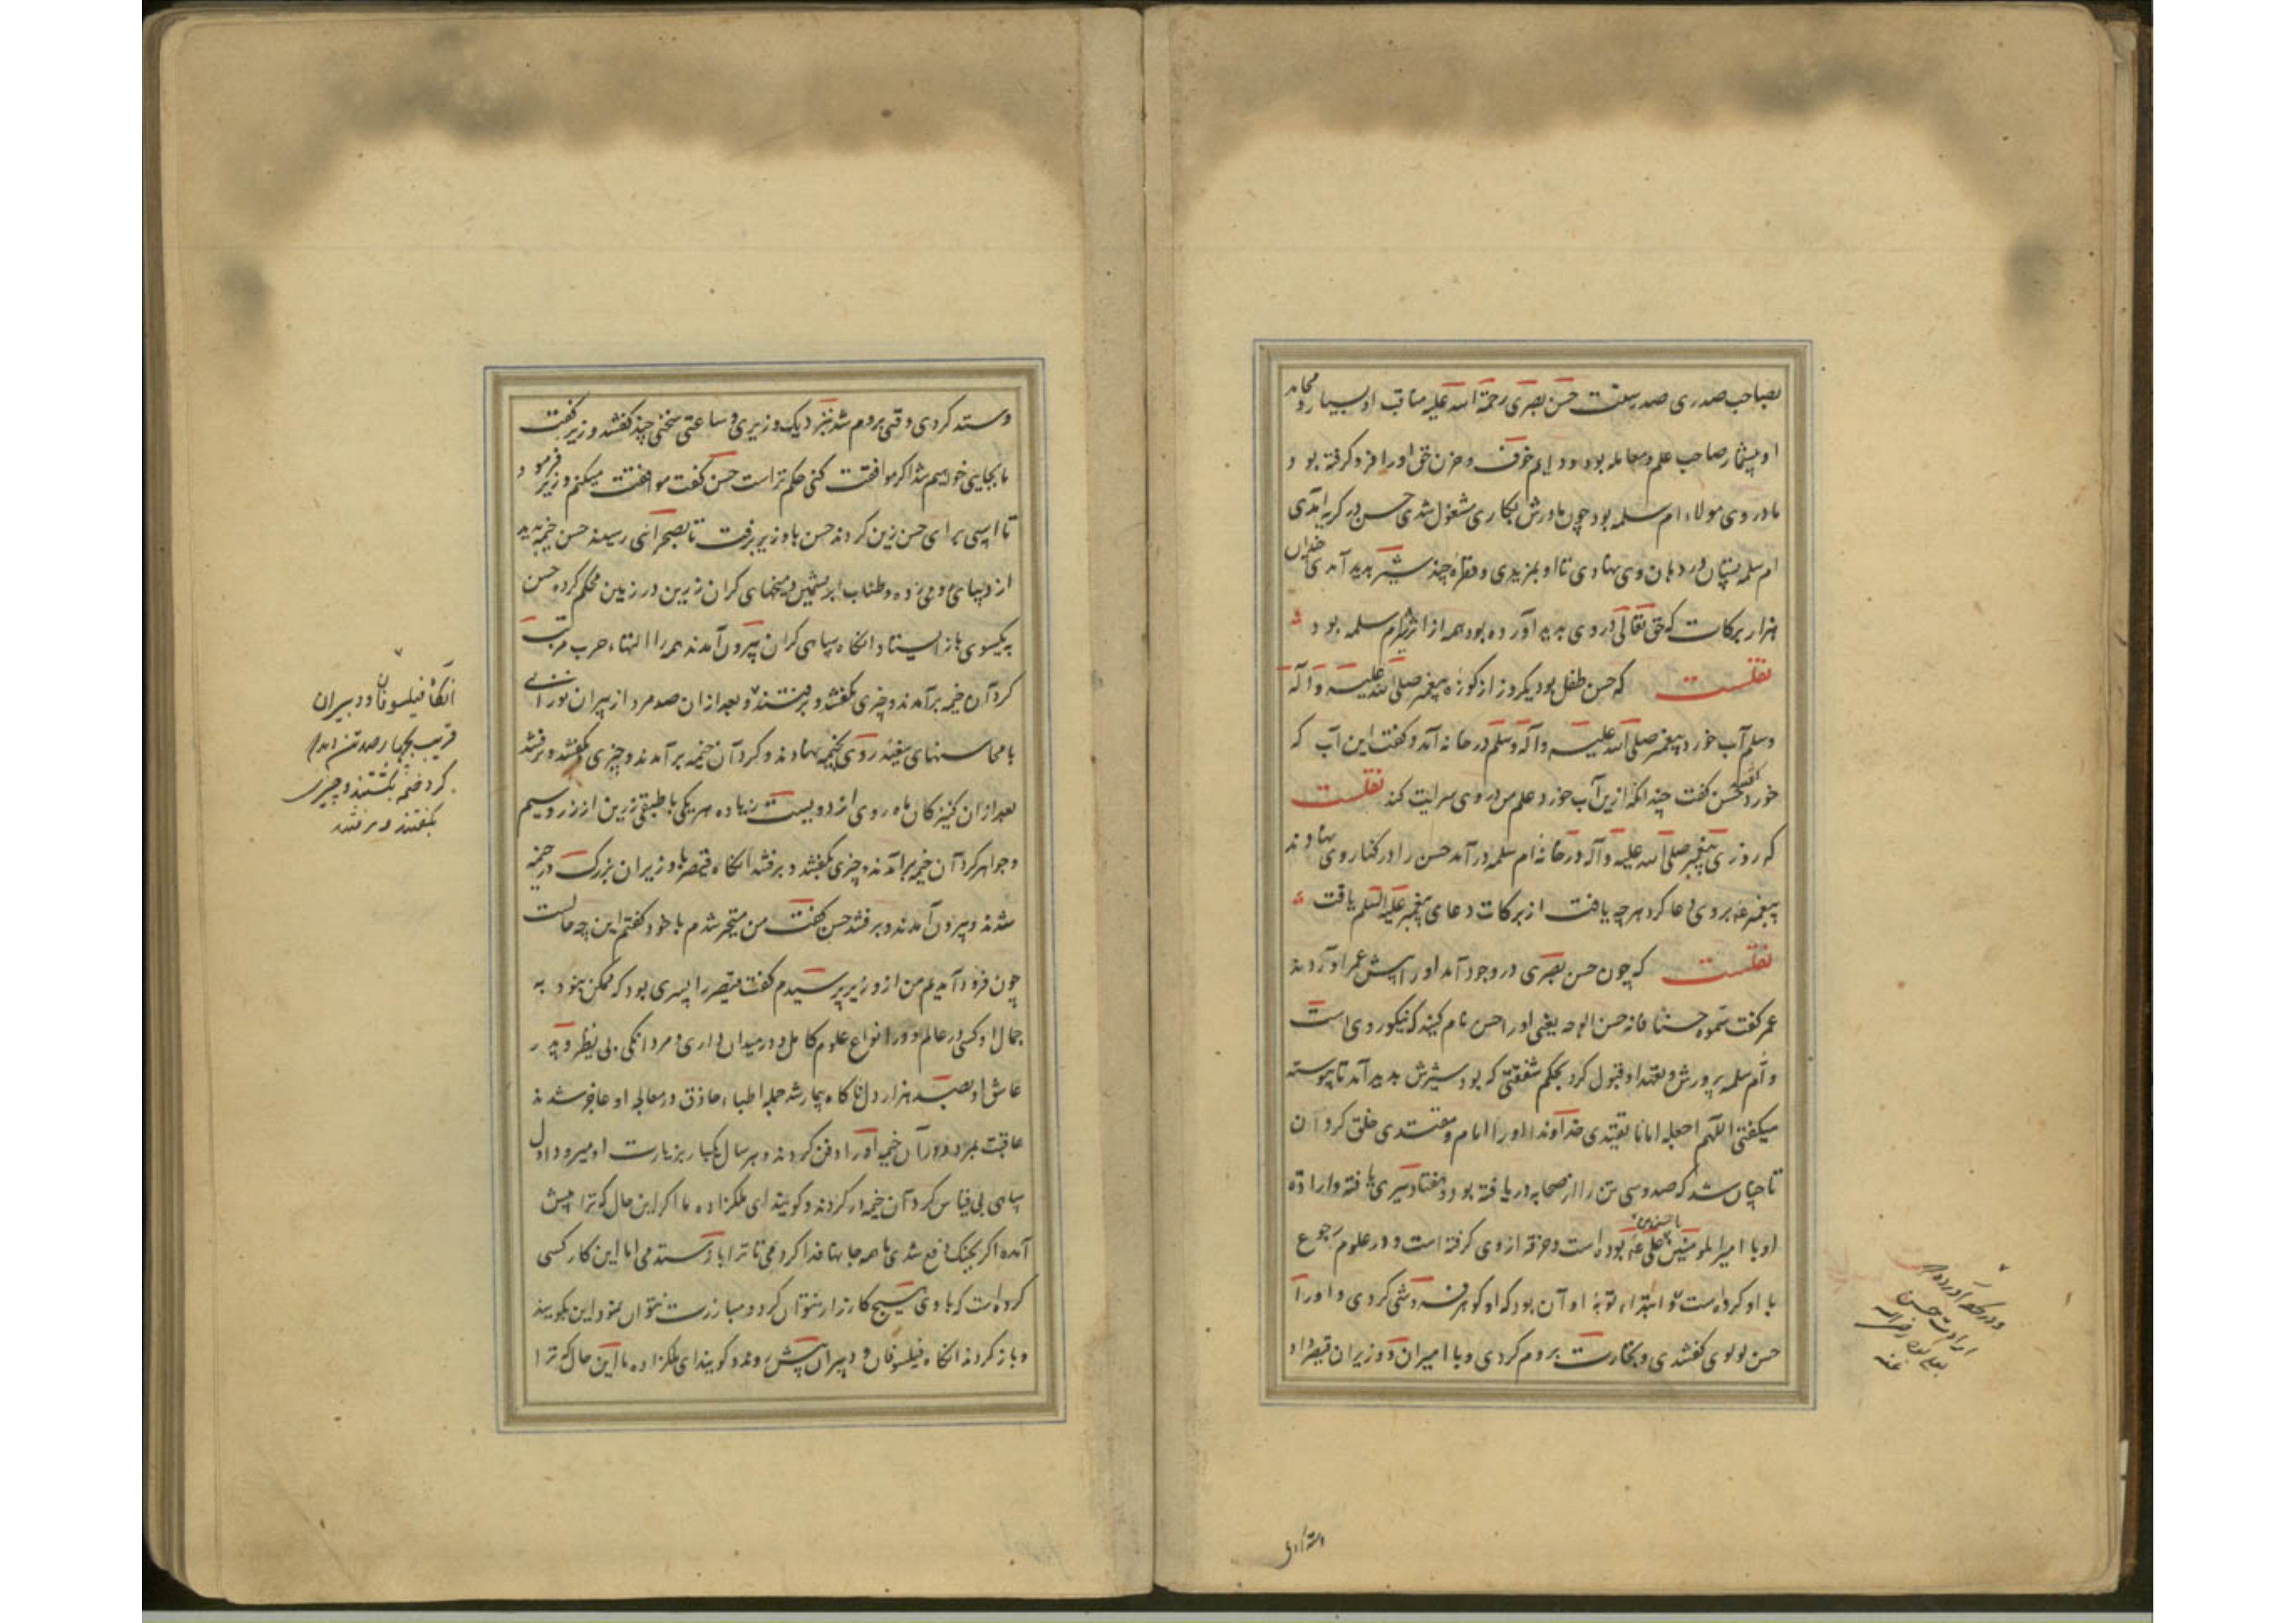 بصاحب صدری صدر سنت حسن بصری رحمة الله علیه مناقب او بسیار و محامد
او بیشمار صاحب علم و معامله بود و دایم خوف و حزن حق او را فرو گرفته بود و
مادر وی مولاء ام سلمه بود چون مادرش بکاری مشغول شدی حسن در کریه آمدی
ام سلمه پستان در دهان وی نهادی تا او بمزیدی و قطره چند شیر پدید آمدی چندان
هزار برکات که حق تعالی در وی پدید آورده بود همه از اثر ام سلمه بود
نقلست که حسن طفل بود یکروز از کوزه پیغمبر صلی الله علیه و آله
وسلم آب خورد پیغمبر صلی الله علیه و آله وسلم در خانه آمد و کفت این آب که
خورد کفتند حسن کفت چندانکه ازین آب خورد علم من در وی سرایت کند نقلست
که روزی پیغمبر صلی الله علیه و آله در خانه ام سلمه در آمد حسن را در کنار وی نهادند
پیغمبر عه بر وی دعا کرد هر چه یافت از برکات دعای پیغمبر علیه السلم یافت
نقلست که چون حسن بصری در وجود آمد او را پیش عمر آوردند
عمر کفت سموه حسنا فانه حسن الوجه یعنی او را حسن نام کنید که نیکوروی است
و ام سلمه پرورش و تعهد او قبول کرد بحکم شفقتی که بود شیرش پدید آمد تا پیوسته
میکفتی اللهم اجعله اماما یقتدی خداوندا او را امام و مقتدی خلق کردان
تا چنان شد که صد و سی تن را از صحابه دریافته بود و هفتاد بدری یافته و ارادة
او با امیرالمومنین علی عه بوده است و خرقه از وی کرفته است و در علوم رجوع
با او کرده است و ابتداء توبه او آن بود که او کوهر فروشی کردی و او را
حسن لولوی کفتندی و تجارت بروم کردی و با امیران و وزیران قیصر داد
وستد کردی وقتی بروم شد نزدیک وزیری و ساعتی سخنی چند کفتند وزیر کفت
ما بجایی خواهیم شد اکر موافقت کنی حکم تراست حسن کفت موافقت میکنم وزیر فرمود
تا اسپی برای حسن زین کردند حسن با وزیر برفت تا بصحرائی رسیدند حسن خیمه دید
از دیبای رومی زده و طناب ابریشمین و میخهای کران زرین در زمین محکم کرده حسن
بیکسوی باز ایستاد انکاه سپاهی کران بیرون آمدند همه را التهاء حرب مرتب
کرد آن خیمه برآمدند و چیزی بکفتند و برفتند و بعد از ان صد مرد از پیران نورانی
با محاسنهای سفید روی بخیمه نهادند و کرد آن خیمه برآمدند و چیزی بکفتند و برفتند
بعد از ان کنیزکان ماه روی از دویست زیاده هر یکی با طبقی زرین از زر و سیم
و جواهر کرد آن خیمه برآمدند و چیزی بکفتند و برفتند انکاه قیصر با وزیران بزرک در خیمه
شدند و بیرون آمدند و برفتند حسن کفت من متحیر شدم با خود کفتم این چه حالست
چون فرود آمدیم من از وزیر پرسیدم کفت قیصر را پسری بود که ممکن نبود به
جمال او کسی در عالم و در انواع علوم کامل و در میدان داری و مردانکی بی نظیر و پدر
عاشق او بصد هزار دل ناکاه بیمار شد جمله اطباء حاذق در معالجه او عاجز شدند
عاقبت بمرد در آن خیمه او را دفن کردند و هر سال یکبار بزیارت او میرود اول
سپاهی بی قیاس کرد آن خیمه در کردند و کویند ای ملکزاده ما اکر این حال که ترا پیش
آمده اکر بجنک دفع شدی ما همه جانها فدا کردمی تا ترا باز ستدمی اما این کار کسی
کرده است که با وی هیچ کارزار نتوان کرد و مبارزت نتوان نمود این بکویند
و باز کردند انکاه فیلسوفان و دبیران پیش روند و کویند ای ملکزاده ما این حال که ترا
انکاه فیلسوفان و دبیران
قریب بچهار صد تن آمدند
کرد خیمه بکشتند و چیزی
بکفتند و برفتند